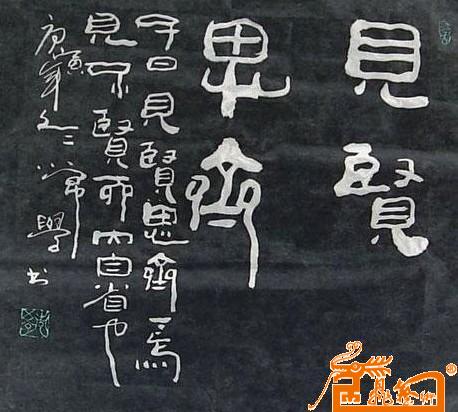 見賢
思齊
子曰見賢思齊焉
見不賢而內自省也
庚寅年
學書